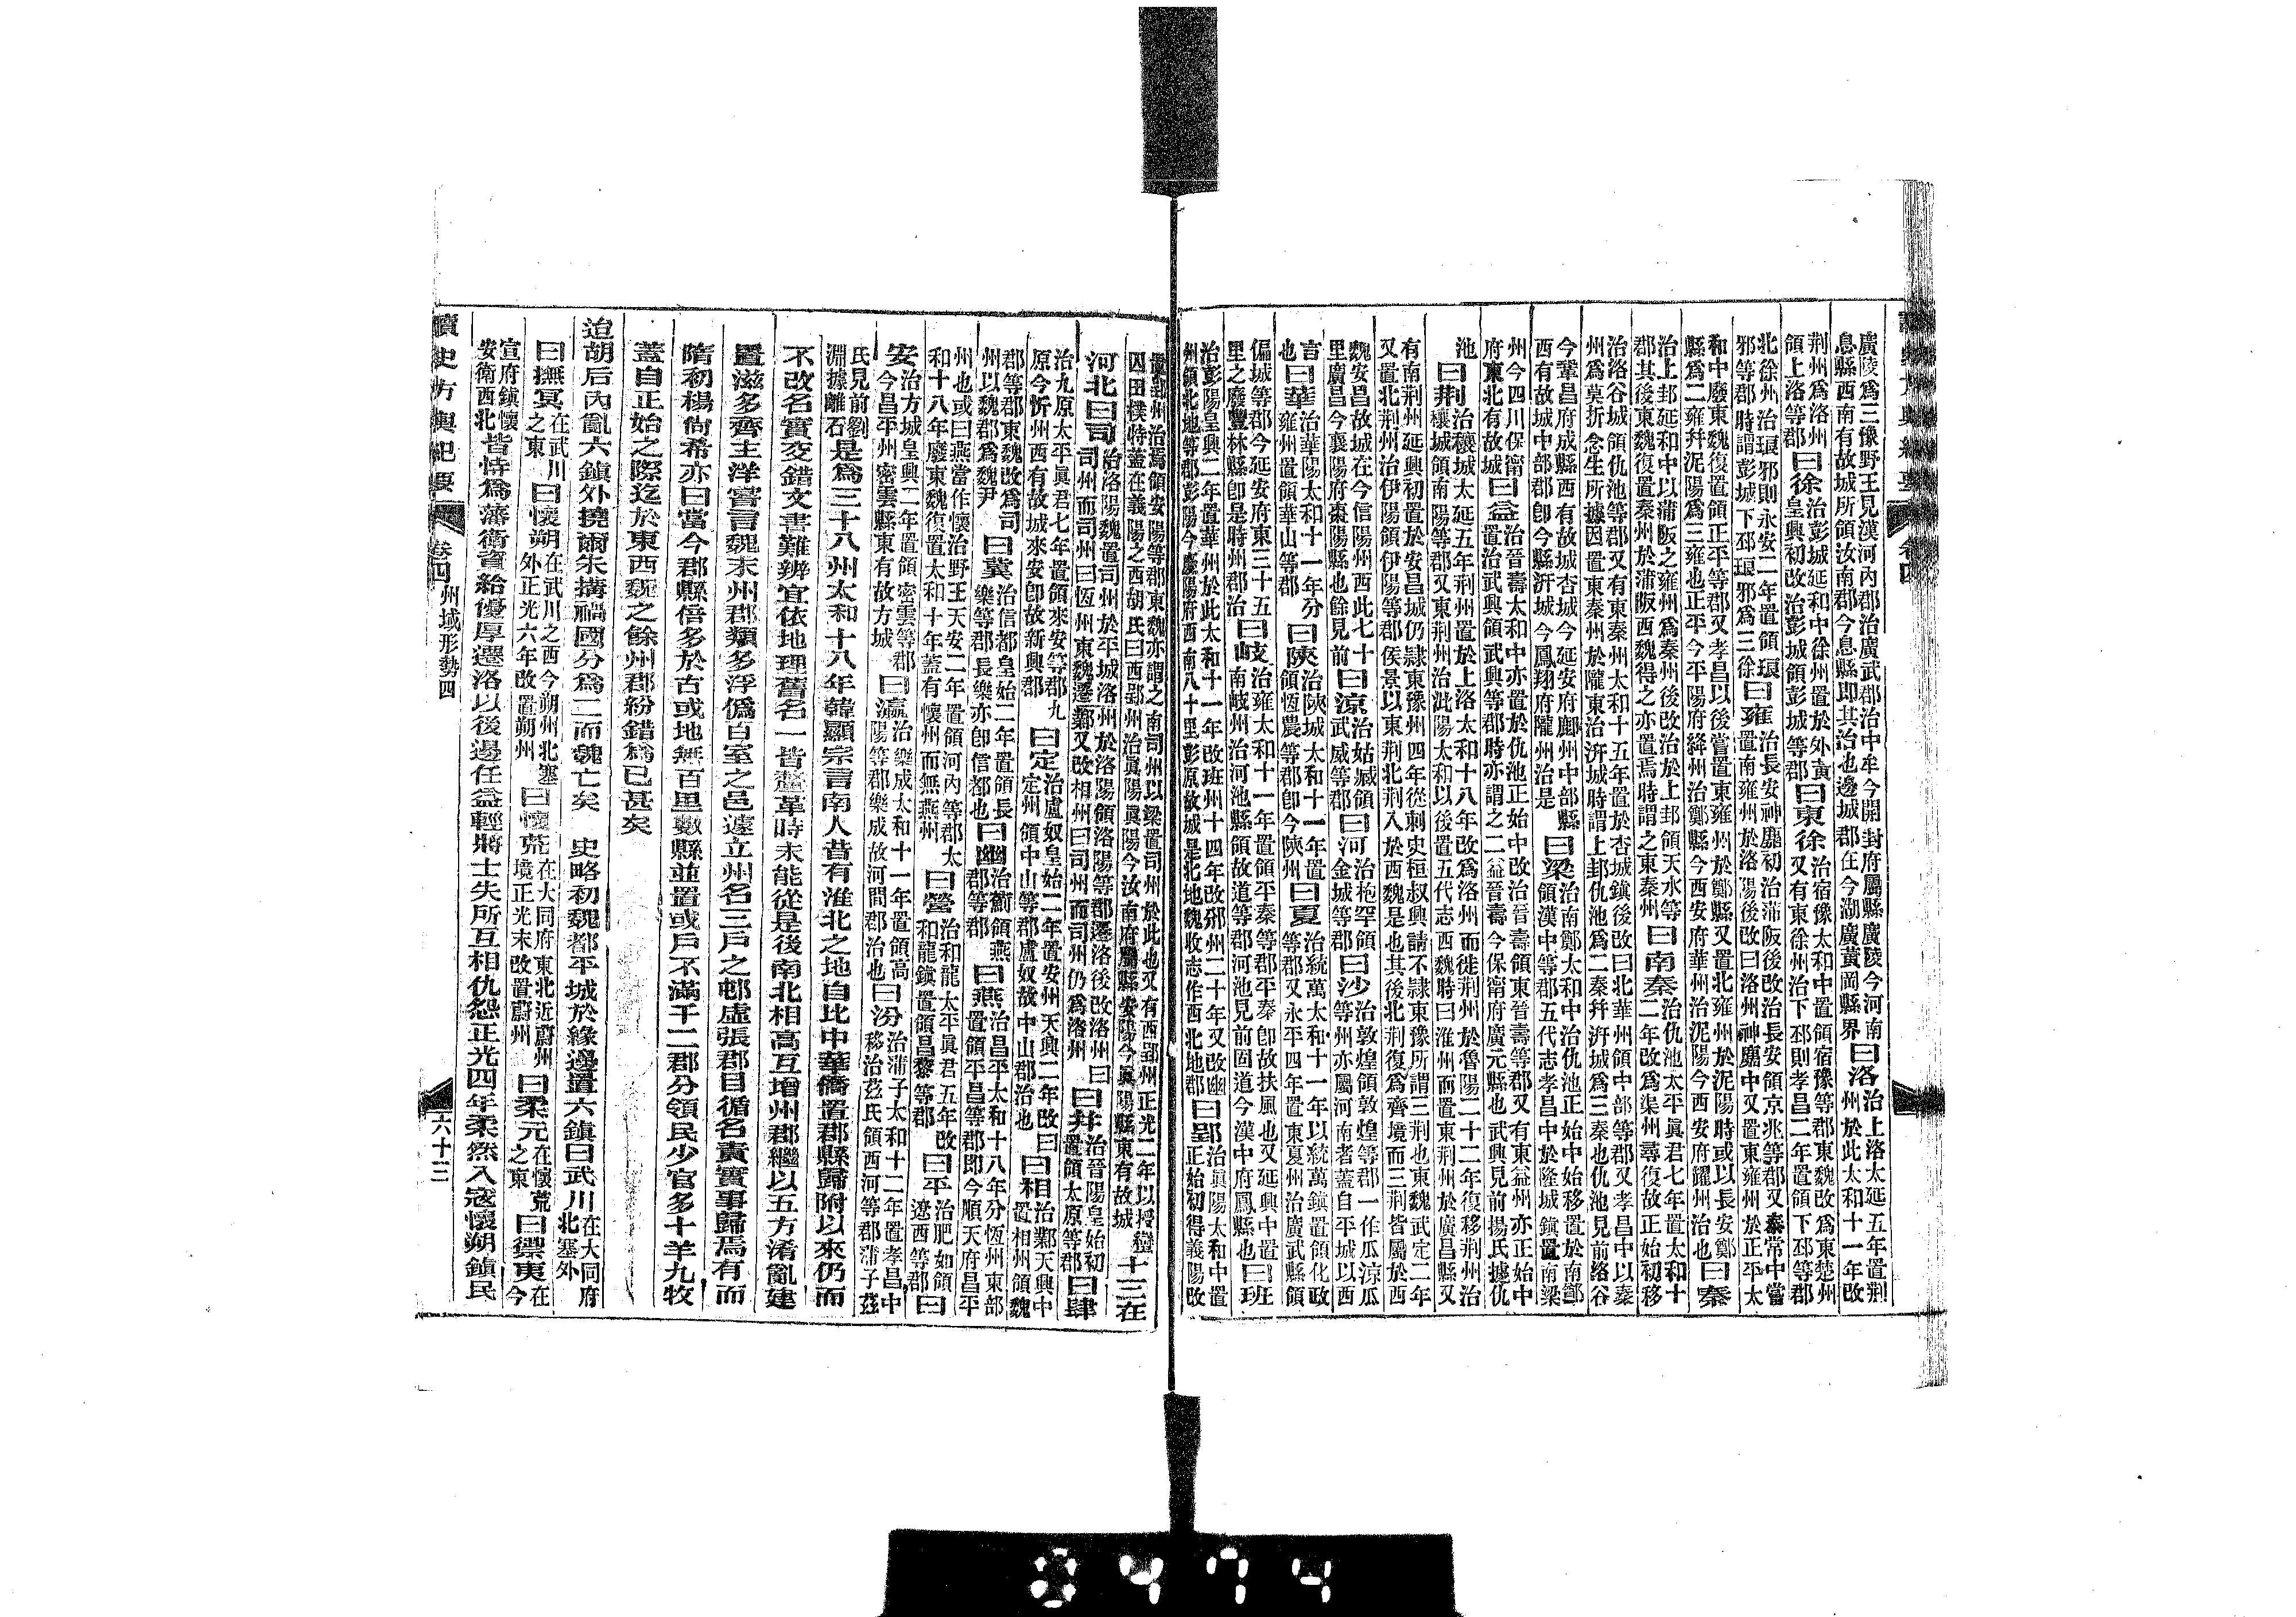 廣陵爲三豫野王見漢河內郡治廣武郡治中牟今開封府屬縣廣陵今河南息縣西南有故城所領汝南郡今息縣即其治也邊城郡在今湖廣黃岡縣界曰洛治上洛太延五年置荆州於此太和十一年改
荆州爲洛州領上洛等郡曰徐治彭城延和中徐州置於外黃皇興初改治彭城領彭城等郡曰東徐治宿豫太和中置領宿豫等郡東魏改爲東楚州又有東徐州治下邳則孝昌二年置領下邳等郡
北徐州治琅邪則永安二年置領琅邪等郡時謂彭城下邳琅邪爲三徐曰雍治長安神䴥初治蒲阪後改治長安領京兆等郡又泰常中嘗置南雍州於洛陽後改曰洛州神䴥中又置東雍州於正平太
和中廢東魏復置領正平等郡又孝昌以後嘗置東雍州於鄭縣又置北雍州於泥陽時或以長安鄭縣爲二雍幷泥陽爲三雍也正平今平陽府絳州治鄭縣今西安府華州治泥陽今西安府耀州治也曰秦
治上邽延和中以蒲阪之雍州爲秦州後改治於上邽領天水等郡其後東魏復置秦州於蒲阪西魏得之亦置焉時謂之東秦州曰南秦治仇池太平眞君七年置太和十二年改爲渠州尋復故正始初移
治洛谷城領仇池等郡又有東秦州太和十五年置於杏城鎮後改曰北華州領中部等郡又孝昌中以秦州爲莫折念生所據因置東秦州於隴東治汧城時謂上邽仇池爲二秦幷汧城爲三秦也仇池見前洛谷
今鞏昌府成縣西有故城杏城今延安府鄜州中部縣西有故城中部郡卽今縣汧城今鳳翔府隴州治是曰梁治南鄭太和中治仇池正始中始移置於南鄭領漢中等郡五代志孝昌中於隆城鎮置南梁
州今四川保甯府東北有故城曰益治晉壽太和中亦置於仇池正始中改治晉壽領東晉壽等郡又有東益州亦正始中置治武興領武興等郡時亦謂之二益晉壽今保甯府廣元縣也武興見前揚氏據仇
池曰荆治穰城太延五年荆州置於上洛太和十八年改爲洛州而徙荆州於魯陽二十二年復移荆州治穰城領南陽等郡又東荆州治泚陽太和以後置五代志西魏時曰淮州而置東荆州於廣昌縣又
有南荆州延興初置於安昌城仍隷東豫州四年從刺史桓叔興請不隷東豫所謂三荆也東魏武定二年又置北荆州治伊陽領伊陽等郡侯景以東荆北荆入於西魏是也其後北荆復爲齊境而三荆皆屬於西
魏安昌故城在今信陽州西北七十里廣昌今襄陽府棗陽縣也餘見前曰涼治姑臧領武威等郡曰河治枹罕領金城等郡曰沙治敦煌領敦煌等郡一作瓜涼瓜等州亦屬河南者蓋自平城以西
言也曰華治華陽太和十一年分雍州置領華山等郡曰陝治陝城太和十一年置領恆農等郡卽今陝州曰夏治統萬太和十一年以統萬鎮置領化政等郡又永平四年置東夏州治廣武縣領
偏城等郡今延安府東三十五里之廢豐林縣卽是時州郡治曰岐治雍太和十一年置領平秦等郡平秦卽故扶風也又延興中置南岐州治河池縣領故道等郡河池見前固道今漢中府鳳縣也曰班
治彭陽皇興二年置華州於此太和十一年改班州十四年改邠州二十年又改幽州領北地等郡彭陽今慶陽府西南八十里彭原故城是北地魏收志作西北地郡曰郢治眞陽太和中置正始初得義陽改
郢州治焉領安陽等郡東魏亦謂之南司州以梁置司州於此也又有西郢州正光二年以授蠻囚田樸特蓋在義陽之西胡氏曰西郢州治眞陽眞陽今汝南府屬縣安陽今眞陽縣東有故城十三在
河北曰司治洛陽魏置司州於平城洛州於洛陽領洛陽等郡遷洛後改洛州曰司州而司州曰恆州東魏遷鄴又改相州曰司州而司州仍爲洛州曰幷治晉陽皇始初置領太原等郡曰肆
治九原太平眞君七年置領來安等郡九原今忻州西有故城來安卽故新興郡曰定治盧奴皇始二年置安州天興二年改曰定州領中山等郡盧奴故中山郡治也曰相治鄴天興中置相州領魏
郡等郡東魏改爲司州以魏郡爲魏尹曰冀治信都皇始二年置領長樂等郡長樂亦卽信都也曰幽治薊領燕郡等郡曰燕治昌平太和十八年分恆州東部置領平昌等郡卽今順天府昌平
州也或曰燕當作懷治野王天安二年置領河內等郡太和十八年廢東魏復置太和十年蓋有懷州而無燕州曰營治和龍太平眞君五年改和龍鎮置領昌黎等郡曰平治肥如領遼西等郡曰
安治方城皇興二年置領密雲等郡今昌平州密雲縣東有故方城曰瀛治樂成太和十一年置領高陽等郡樂成故河間郡治也曰汾治蒲子太和十二年置孝昌中移治茲氏領西河等郡蒲子茲
氏見前劉淵據離石是爲三十八州太和十八年韓顯宗言南人昔有淮北之地自比中華僑置郡縣歸附以來仍而
不改名實交錯文書難辨宜依地理舊名一皆釐革時未能從是後南北相高互增州郡繼以五方淆亂建
置滋多齊主洋嘗言魏末州郡類多浮僞百室之邑遽立州名三戶之邨虛張郡目循名責實事歸焉有而
隋初楊尙希亦曰當今郡縣倍多於古或地無百里數縣並置或戶不滿千二郡分領民少官多十羊九牧
蓋自正始之際迄於東西魏之餘州郡紛錯爲已甚矣
迨胡后內亂六鎮外撓爾朱搆禍國分爲二而魏亡矣 史略初魏都平城於緣邊置六鎮曰武川在大同府北塞外
曰撫冥在武川之東曰懷朔在武川之西今朔州北塞外正光六年改置朔州曰懷荒在大同府東北近蔚州境正光末改置蔚州曰柔元在懷荒之東曰禦夷今在
宣府鎮懷安衛西北皆恃爲藩衛資給優厚遷洛以後邊任益輕將士失所互相仇怨正光四年柔然入寇懷朔鎮民
讀史方輿紀要 卷四 州域形勢四 六十三
8474